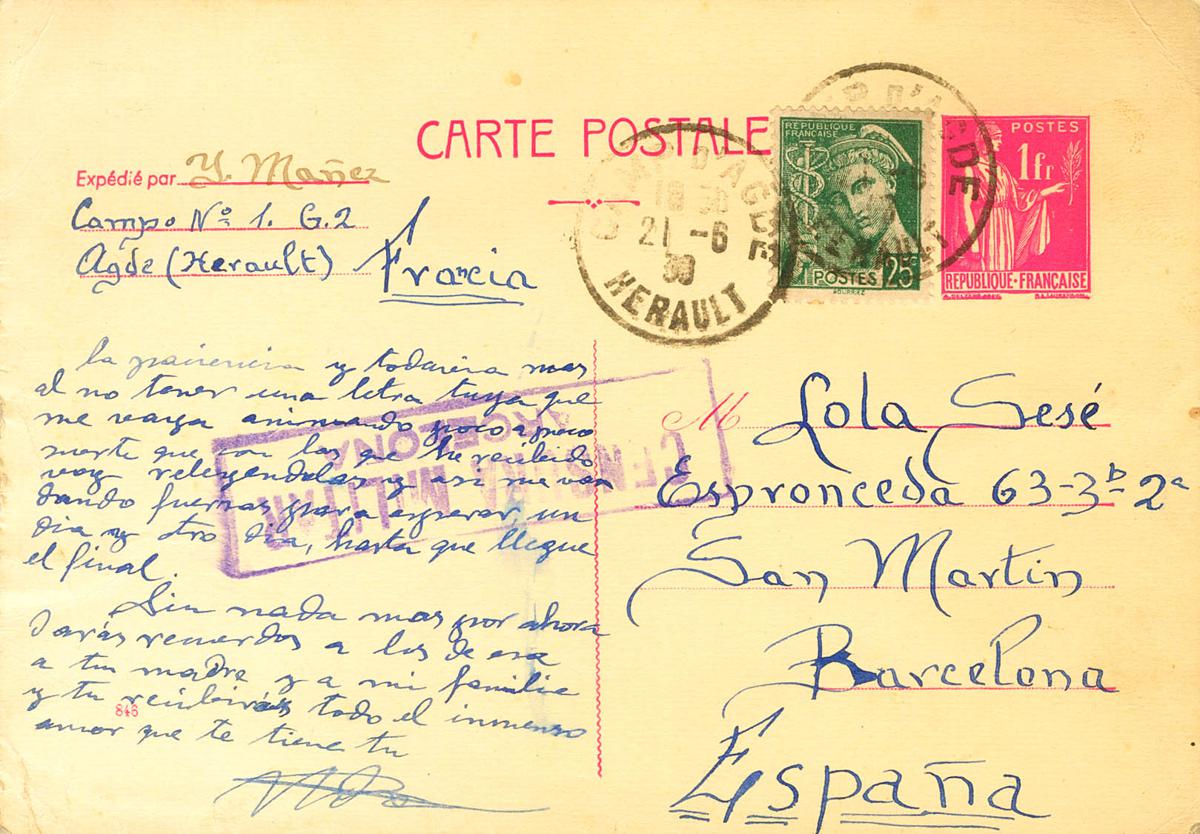 CARTE POSTALE
Expédié par Y. Mañez
Campo Nº 1. G.2
Agde (Herault) Francia
CAMP D'AGDE
18 30
21 -6
39
HERAULT
REPUBLIQUE
FRANÇAISE
POSTES 25
POSTES
1fr
REPUBLIQUE·FRANÇAISE
la paciencia y todavia mas
al no tener una letra tuya que
me vaya animando poco a poco
mente que con las que he recibido
voy releyendolas y asi me van
dando fuerzas para esperar, un
dia y otro dia, hasta que llegue
el final.
Sin nada mas por ahora
Darás recuerdos a los de esa
a tu madre y a mi familia
y tu recibirás todo el inmenso
amor que te tiene tu
846
CENSURA MILITAR
BARCELONA
M Lola Sesé
Espronceda 63-3º-2ª
San Martin
Barcelona
España